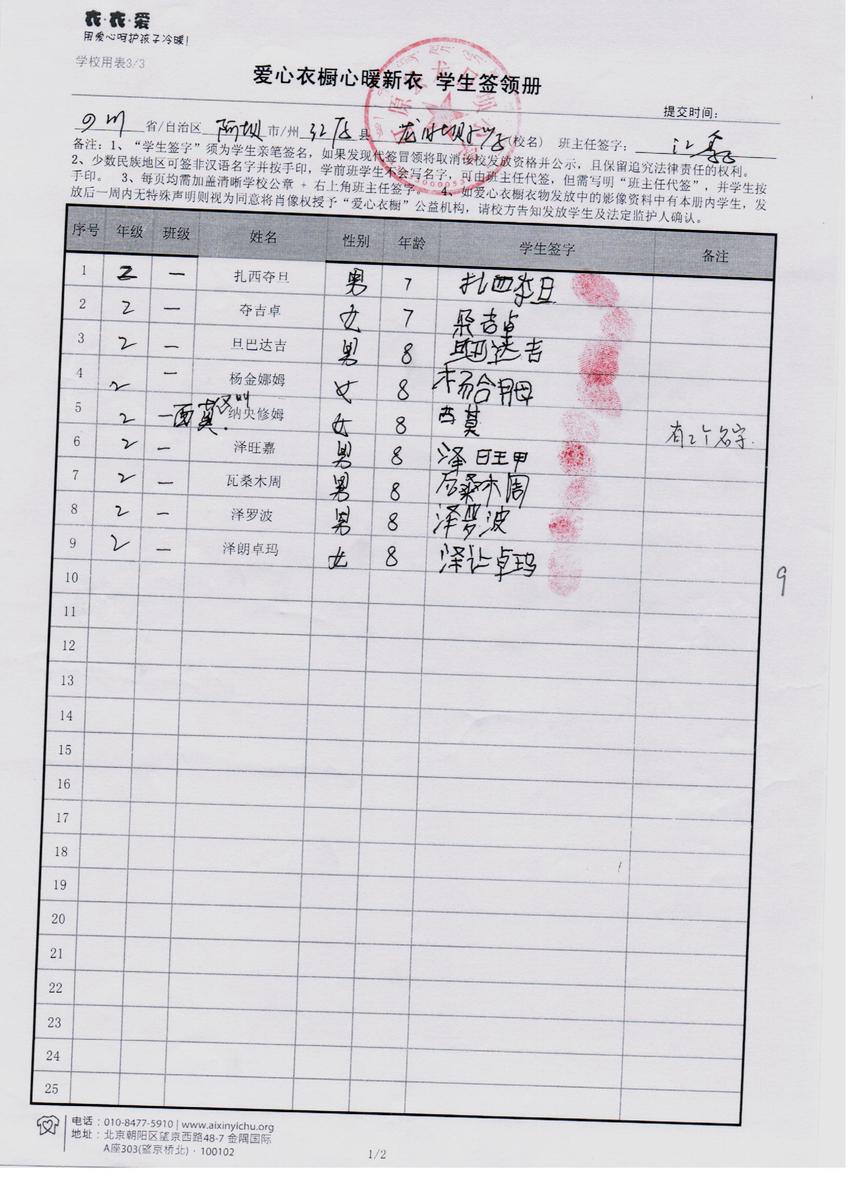 衣·衣·爱
用爱心呵护孩子冷暖!
学校用表3/3
爱心衣橱心暖新衣 学生签领册
提交时间:
四川 省/自治区 阿坝 市/州 红原 县 (校名) 班主任签字:
备注: 1、“学生签字”须为学生亲笔签名, 如果发现代签冒领将取消该校发放资格并公示, 且保留追究法律责任的权利。
2、少数民族地区可签非汉语名字并按手印, 学前班学生不会写名字, 可由班主任代签, 但需写明“班主任代签”, 并学生按
手印。 3、每页均需加盖清晰学校公章 + 右上角班主任签字。 4、如爱心衣橱衣物发放中的影像资料中有本册内学生, 发
放后一周内无特殊声明则视为同意将肖像权授予“爱心衣橱”公益机构, 请校方告知发放学生及法定监护人确认。
序号 年级 班级 姓名 性别 年龄 学生签字 备注
1 2 一 扎西夺旦 男 7 扎西
2 2 一 夺吉卓 女 7 朵吉卓
3 2 一 旦巴达吉 男 8 达吉
4 2 一 杨金娜姆 女 8 杨
5 2 一 西莫 纳央修姆 女 8 西莫 有2个名字.
6 2 一 泽旺嘉 男 8 泽日王甲
7 2 一 瓦桑木周 男 8 瓦桑木周
8 2 一 泽罗波 男 8 泽罗波
9 2 一 泽朗卓玛 女 8 泽让卓玛
10
9
11
12
13
14
15
16
17
18
19
20
21
22
23
24
25
电话: 010-8477-5910 | www.aixinyichu.org
地址: 北京朝阳区望京西路48-7 金隅国际
A座303(望京桥北) · 100102
1/2